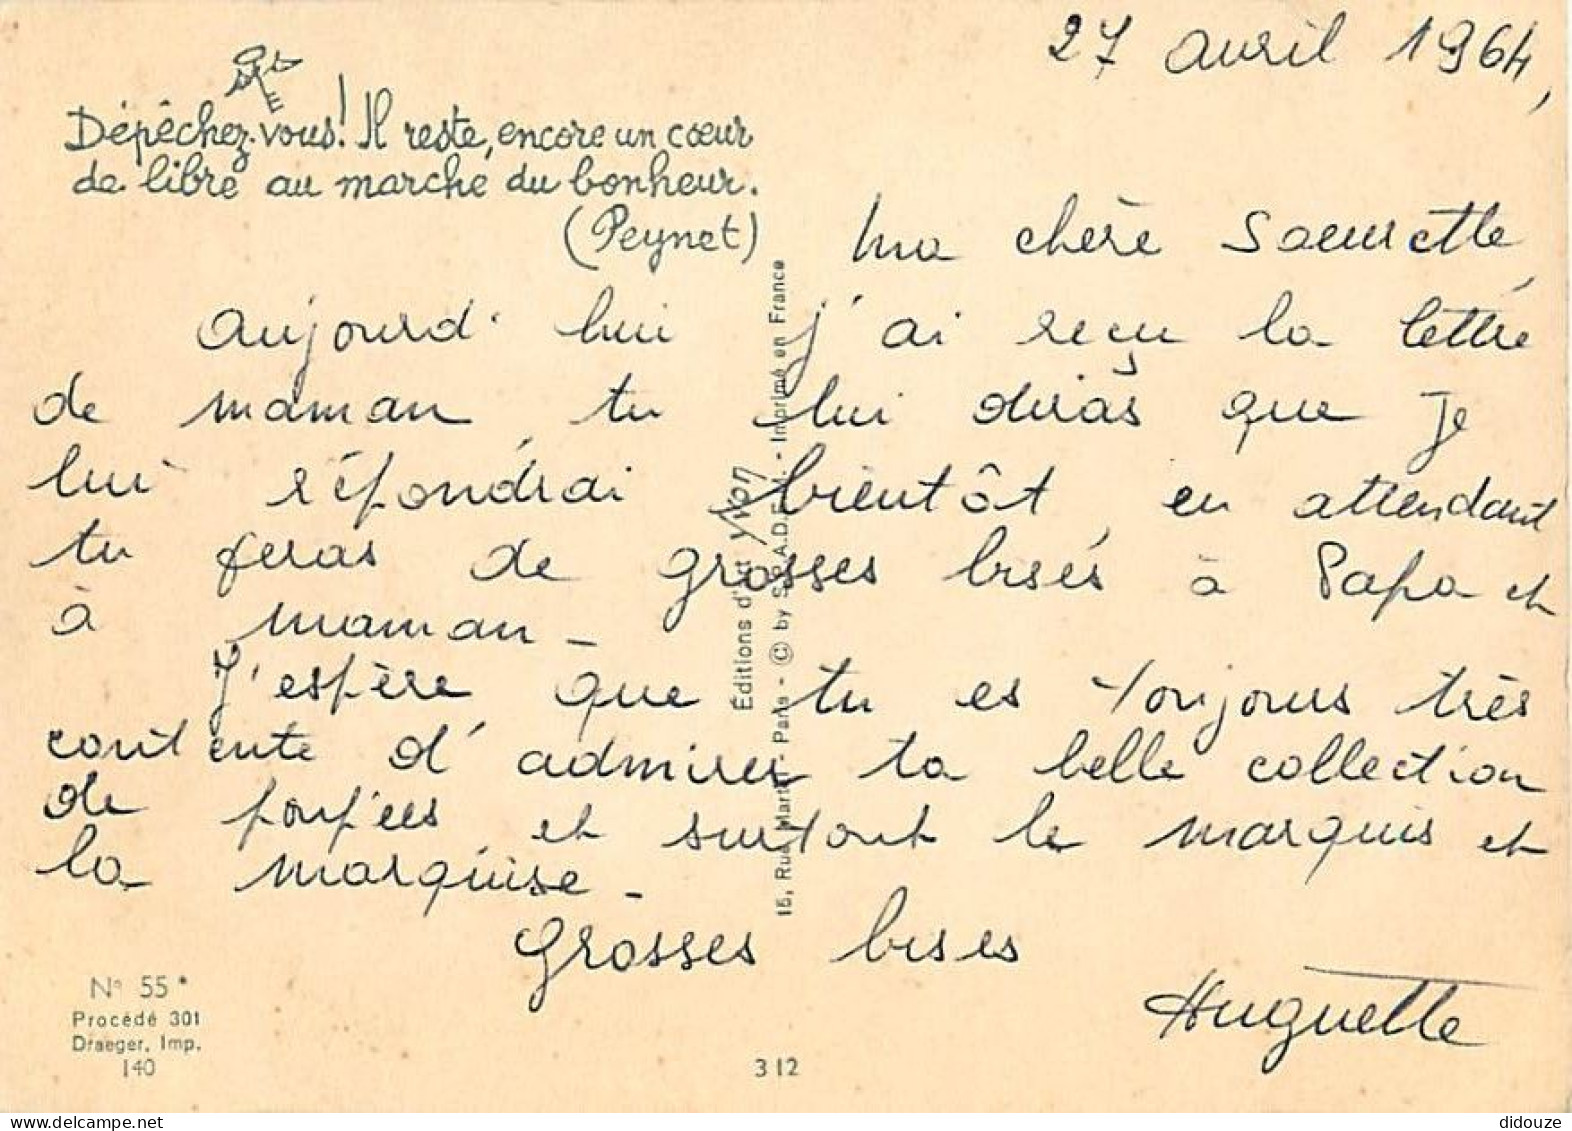 27 avril 1964,
Dépêchez-vous! Il reste, encore un cœur
de libre au marché du bonheur.
(Peynet)
Ma chère Soeurette,
Aujourd'hui j'ai reçu la lettre
de maman, tu lui diras que je
lui répondrai bientôt, en attendant
tu feras de grosses bises à Papa et
à maman -
J'espère que tu es toujours très
contente d'admirer ta belle collection
de poupées, et surtout le marquis et
la marquise -
Grosses bises
Huguette
Éditions d'art Yvon
15, Rue Martel - Paris - © by S.P.A.D.E.M. - Imprimé en France
N° 55*
Procédé 301
Draeger, Imp.
140
312
didouze